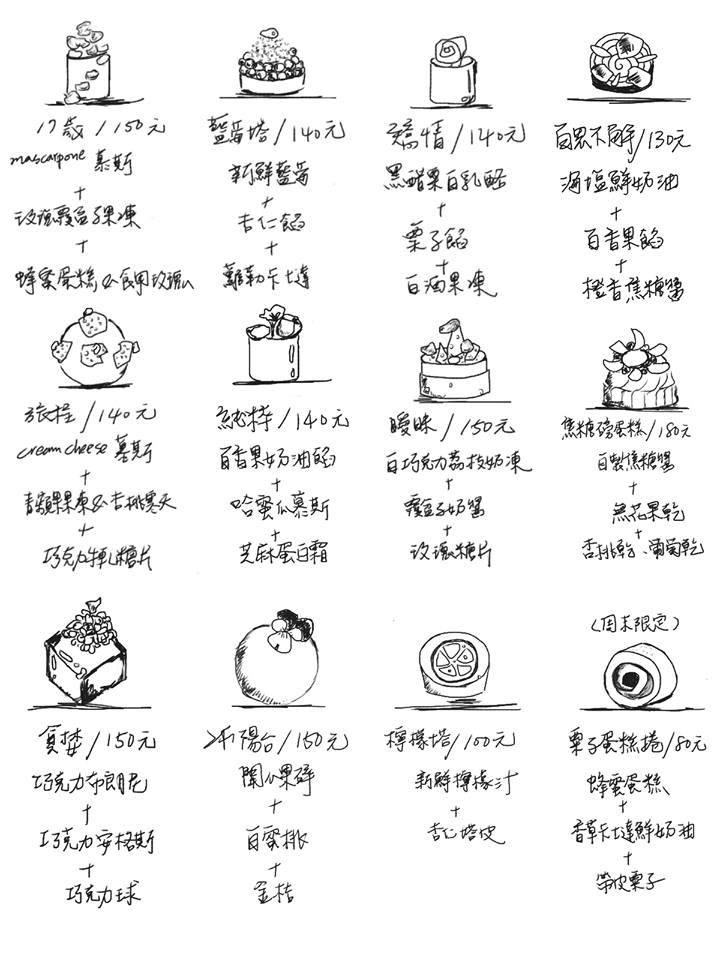 17歲/150元
mascarpone 慕斯
+
玫瑰覆盆子果凍
+
蜂蜜蛋糕&食用玫瑰
藍莓塔/140元
新鮮藍莓
+
杏仁餡
+
蘭姆卡士達
矯情/140元
黑醋栗白乳酪
+
栗子餡
+
白酒果凍
百思不同解/130元
海塩鮮奶油
+
百香果餡
+
橙香焦糖醬
旅程/140元
cream cheese 慕斯
+
青蘋果果凍&杏桃寒天
+
巧克力牛軋糖片
純粹/140元
百香果奶油餡
+
哈蜜瓜慕斯
+
芝麻蛋白霜
曖昧/150元
白巧克力荔枝奶凍
+
覆盆子奶醬
+
玫瑰糖片
焦糖磅蛋糕/180元
自製焦糖醬
+
無花果乾
+
杏桃乾、葡萄乾
/150元
巧克力布朗尼
+
巧克力安格斯
+
巧克力球
陽台/150元
開心果碎
+
白蜜桃
+
金桔
檸檬塔/100元
新鮮檸檬汁
+
杏仁塔皮
(周末限定)
栗子蛋糕捲/80元
蜂蜜蛋糕
+
香草卡士達鮮奶油
+
帶皮栗子